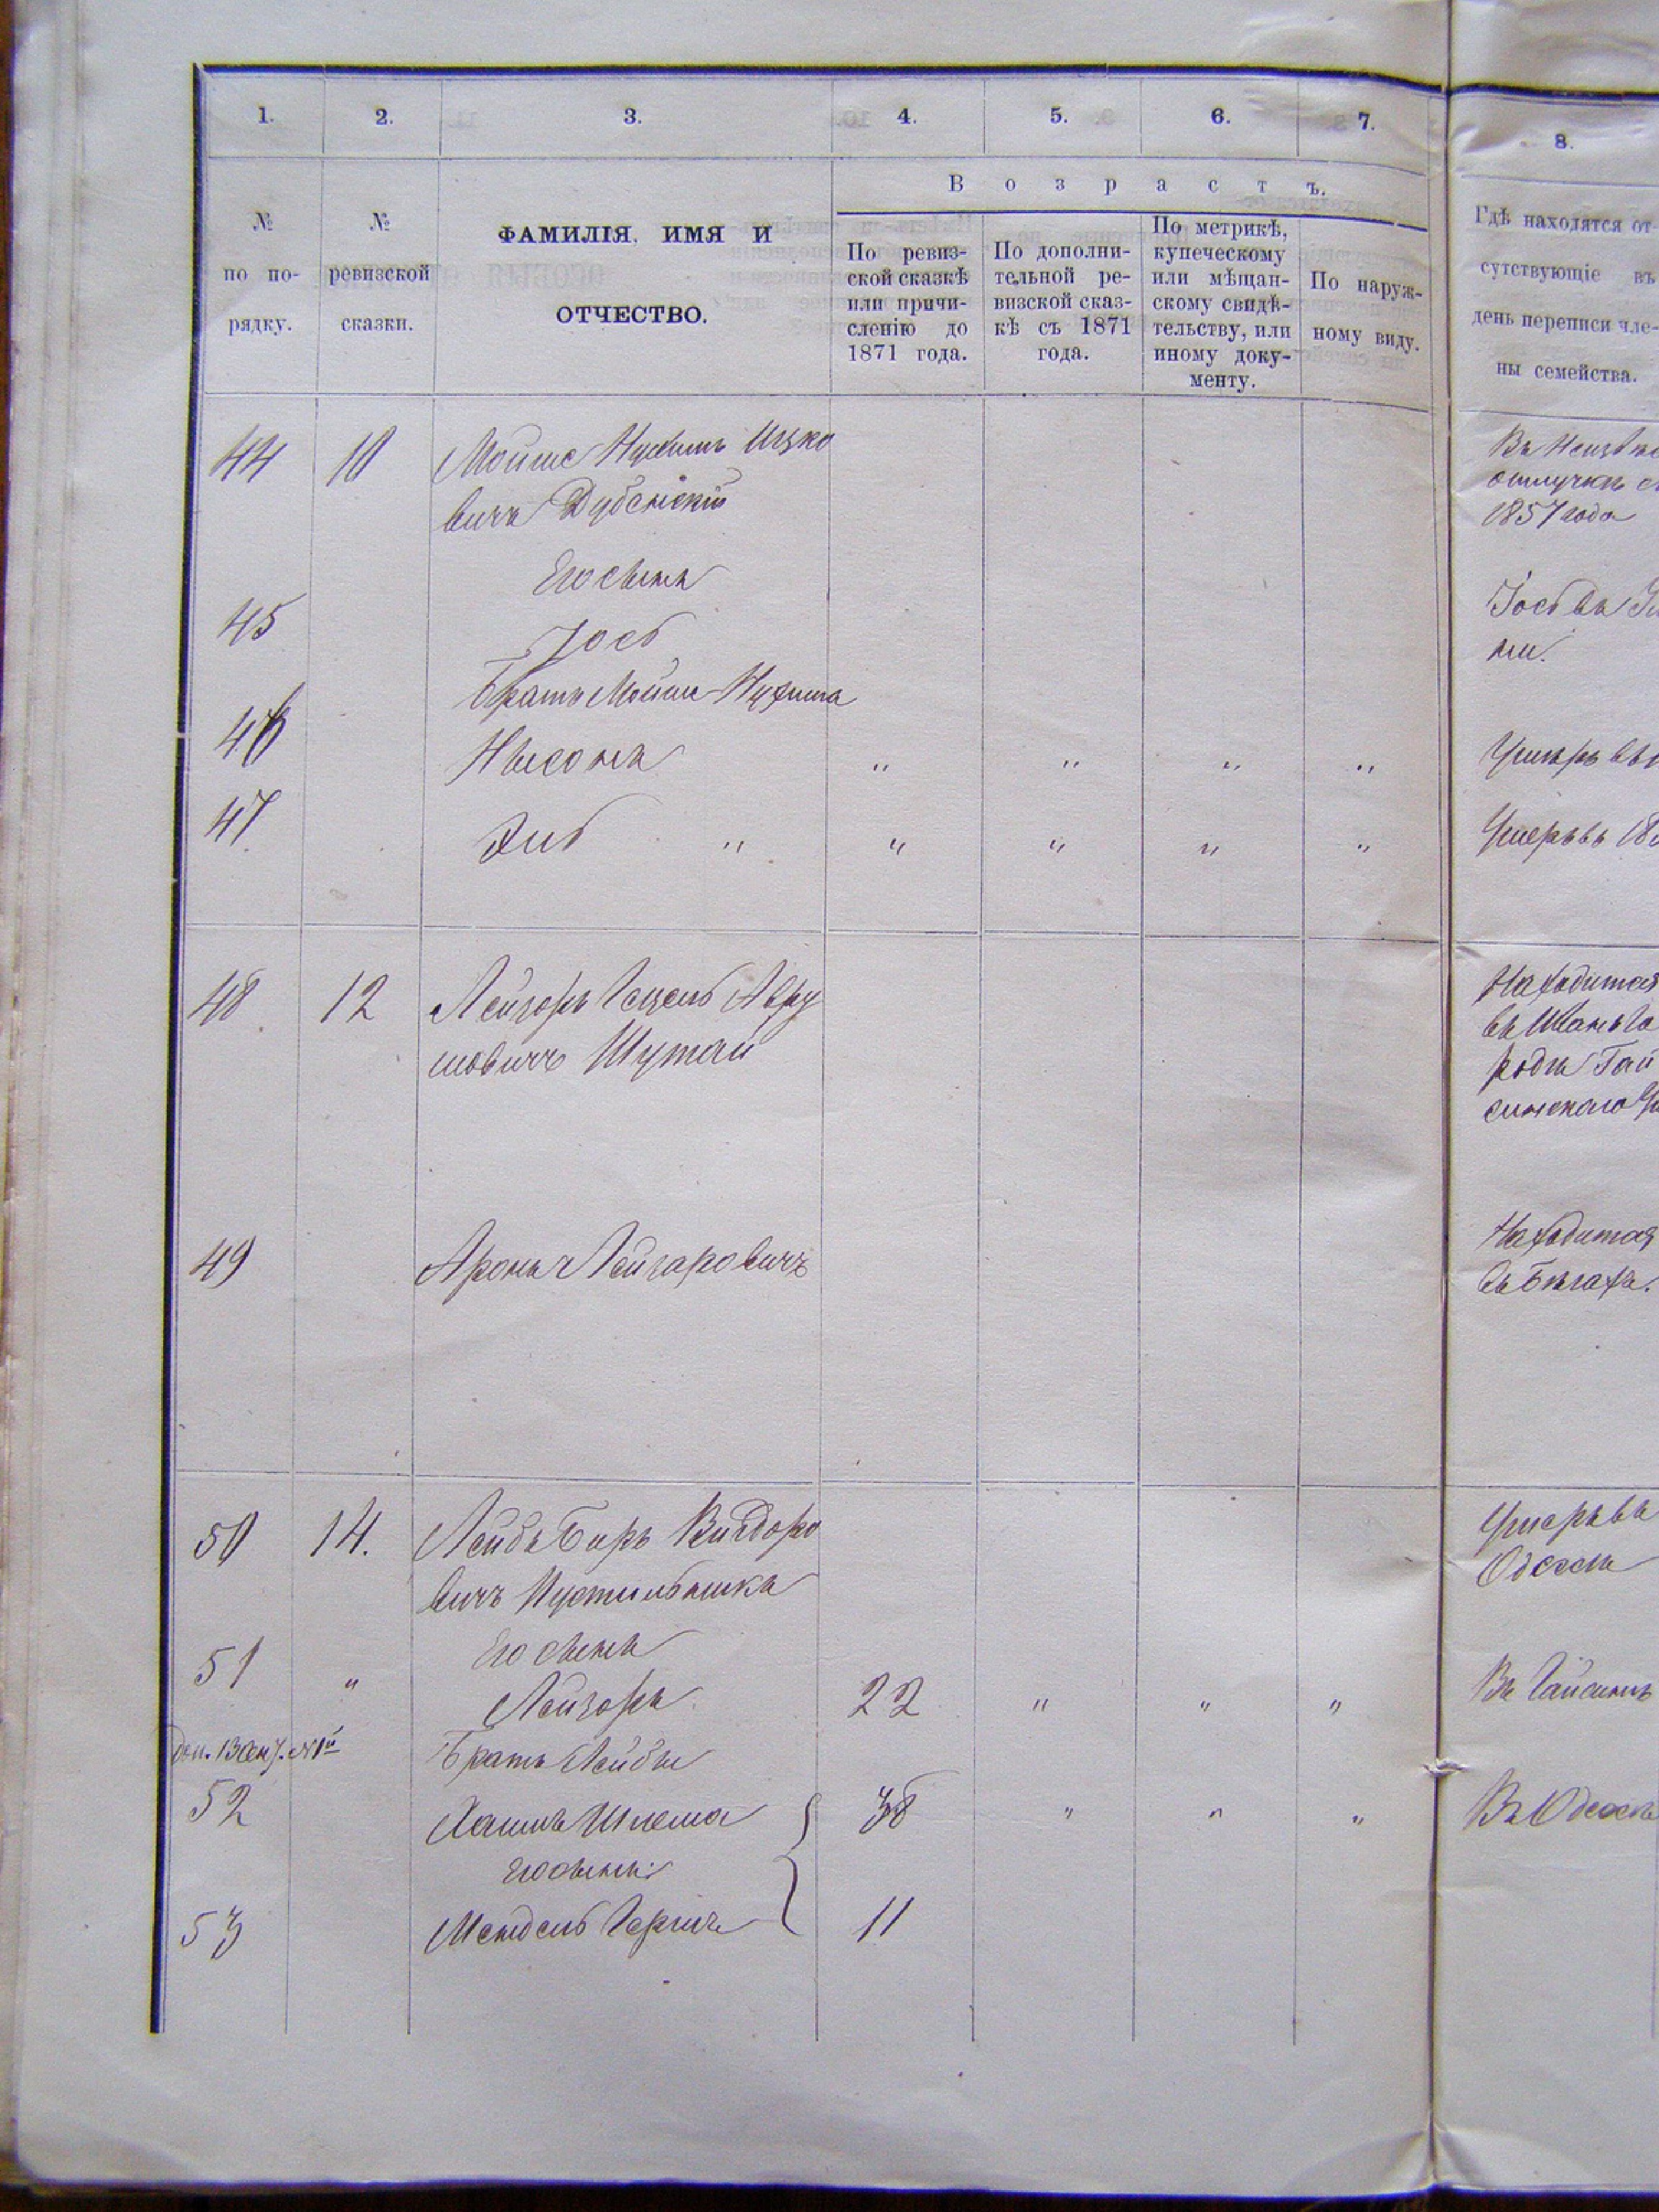 1. 2. 3. 4. 5. 6. 7. 8.
№ по по-рядку.
№ ревизской сказки.
ФАМИЛІЯ, ИМЯ И
ОТЧЕСТВО.
Возрастъ.
По ревиз-
ской сказкѣ
или причи-
сленію до
1871 года.
По дополни-
тельной ре-
визской сказ-
кѣ съ 1871
года.
По метрикѣ,
купеческому
или мѣщан-
скому свидѣ-
тельству, или
иному доку-
менту.
По наруж-
ному виду.
Гдѣ находятся от-
сутствующіе въ
день переписи чле-
ны семейства.
44 10 Мойше Нухимъ Ицко
вичъ Дубенскій
отлучкѣ
1857 года
Его сынъ
45 Іось
Іось въ
Братъ Мойши Нухима
46 Нысонъ " " " "
47 " " " " "
Умеръ въ 18
48 12 Лейзоръ Гецель Авру
мовичъ Шутай
Находится
въ Иванъ Го
родѣ Гай
синскаго
49 Аронъ Лейзаровичъ
Находится
въ бѣгахъ.
50 14. Лейбъ Беръ Вигдоро
вичъ Пустильникъ
Умеръ въ
Одессѣ
Его сынъ
51 " Лейзоръ 22 " " "
Въ Гайсинѣ
Братъ Лейбы
52 Хаимъ Шлема 38 " " "
Въ Одессѣ
Его сынъ:
53 Мендель Гершъ 11